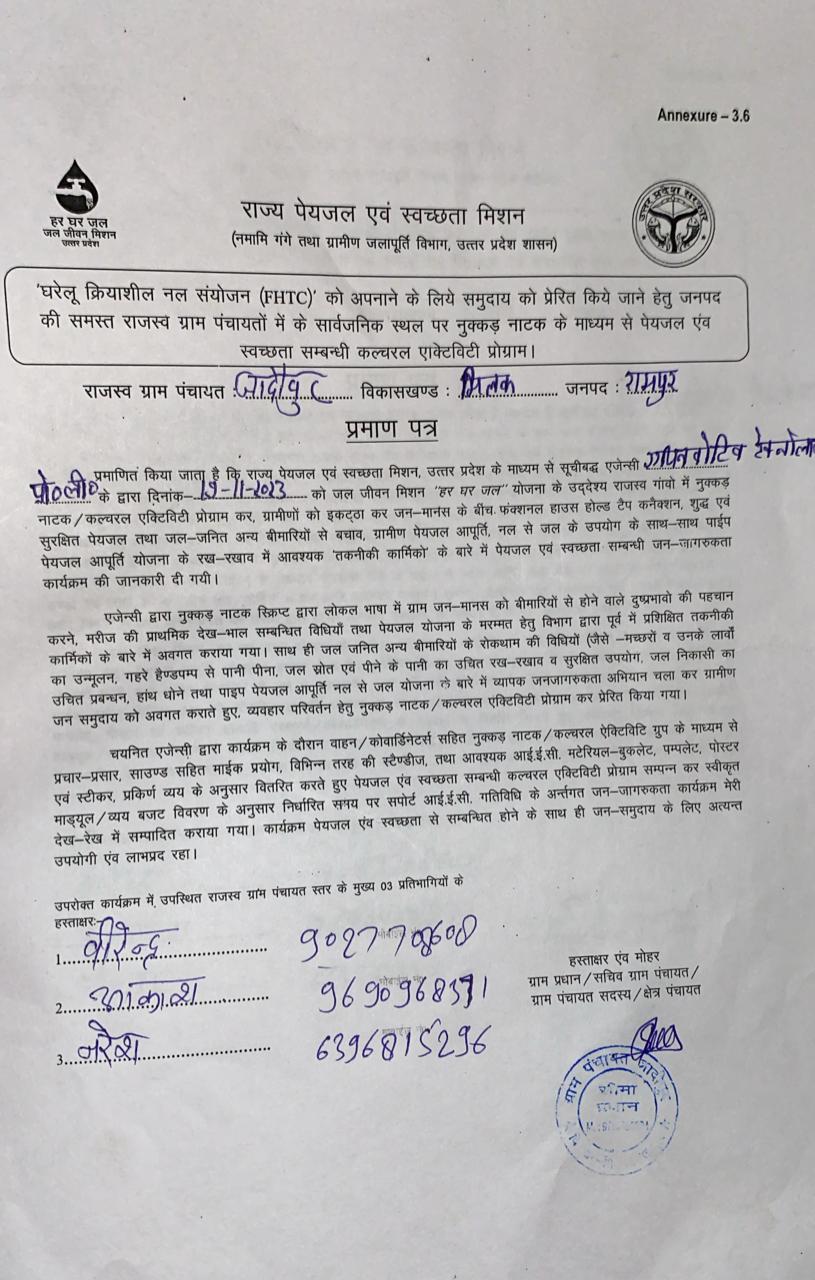 Annexure – 3.6
हर घर जल
जल जीवन मिशन
उत्तर प्रदेश
राज्य पेयजल एवं स्वच्छता मिशन
(नमामि गंगे तथा ग्रामीण जलापूर्ति विभाग, उत्तर प्रदेश शासन)
उत्तर प्रदेश सरकार
'घरेलू क्रियाशील नल संयोजन (FHTC)' को अपनाने के लिये समुदाय को प्रेरित किये जाने हेतु जनपद
की समस्त राजस्व ग्राम पंचायतों में के सार्वजनिक स्थल पर नुक्कड़ नाटक के माध्यम से पेयजल एंव
स्वच्छता सम्बन्धी कल्चरल एाक्टिविटी प्रोग्राम।
राजस्व ग्राम पंचायत जादोपुर विकासखण्ड : मिलक जनपद : रामपुर
प्रमाण पत्र
प्रमाणित किया जाता है कि राज्य पेयजल एवं स्वच्छता मिशन, उत्तर प्रदेश के माध्यम से सूचीबद्ध एजेन्सी
प्रो०ली० के द्वारा दिनांक–19-11-2023 को जल जीवन मिशन "हर घर जल" योजना के उद्देश्य राजस्व गांवो में नुक्कड़
नाटक/कल्चरल एक्टिविटी प्रोग्राम कर, ग्रामीणों को इकट्ठा कर जन–मानंस के बींच फंक्शनल हाउस होल्ड टैप कनैक्शन, शुद्ध एवं
सुरक्षित पेयजल तथा जल–जनित अन्य बीमारियों से बचाव, ग्रामीण पेयजल आपूर्ति, नल से जल के उपयोग के साथ–साथ पाईप
पेयजल आपूर्ति योजना के रख–रखाव में आवश्यक 'तकनीकी कार्मिको' के बारे में पेयजल एवं स्वच्छता सम्बन्धी जन–जागरुकता
कार्यक्रम की जानकारी दी गयी।
एजेन्सी द्वारा नुक्कड़ नाटक स्क्रिप्ट द्वारा लोकल भाषा में ग्राम जन–मानस को बीमारियों से होने वाले दुष्प्रभावो की पहचान
करने, मरीज की प्राथमिक देख–भाल सम्बन्धित विधियाँ तथा पेयजल योजना के मरम्मत हेतु विभाग द्वारा पूर्व में प्रशिक्षित तकनीकी
कार्मिकों के बारे में अवगत कराया गया। साथ ही जल जनित अन्य बीमारियों के रोकथाम की विधियों (जैसे –मच्छरों व उनके लार्वो
का उन्मूलन, गहरे हैण्डपम्प से पानी पीना, जल स्रोत एवं पीने के पानी का उचित रख–रखाव व सुरक्षित उपयोग, जल निकासी का
उचित प्रबन्धन, हांथ धोने तथा पाइप पेयजल आपूर्ति नल से जल योजना के बारे में व्यापक जनजागरुकता अभियान चला कर ग्रामीण
जन समुदाय को अवगत कराते हुए, व्यवहार परिवर्तन हेतु नुक्कड़ नाटक/कल्चरल एक्टिविटी प्रोग्राम कर प्रेरित किया गया।
चयनित एजेन्सी द्वारा कार्यक्रम के दौरान वाहन/कोवार्डिनेटर्स सहित नुक्कड़ नाटक/कल्चरल ऐक्टिविटि ग्रुप के माध्यम से
प्रचार–प्रसार, साउण्ड सहित माईक प्रयोग, विभिन्न तरह की स्टैण्डीज, तथा आवश्यक आई.ई.सी. मटेरियल–बुकलेट, पम्पलेट, पोस्टर
एवं स्टीकर, प्रकिर्ण व्यय के अनुसार वितरित करते हुए पेयजल एंव स्वच्छता सम्बन्धी कल्चरल एक्टिविटी प्रोग्राम सम्पन्न कर स्वीकृत
माड्यूल/व्यय बजट विवरण के अनुसार निर्धारित समय पर सपोर्ट आई.ई.सी. गतिविधि के अर्न्तगत जन–जागरुकता कार्यक्रम मेरी
देख–रेख में सम्पादित कराया गया। कार्यक्रम पेयजल एंव स्वच्छता से सम्बन्धित होने के साथ ही जन–समुदाय के लिए अत्यन्त
उपयोगी एंव लाभप्रद रहा।
उपरोक्त कार्यक्रम में उपस्थित राजस्व ग्राम पंचायत स्तर के मुख्य 03 प्रतिभागियों के
हस्ताक्षरः–
1. वीरेन्द्र 9027708608
2. आकाश 9690968371
3. नरेश 6396815296
हस्ताक्षर एंव मोहर
ग्राम प्रधान/सचिव ग्राम पंचायत/
ग्राम पंचायत सदस्य/क्षेत्र पंचायत
ग्राम पंचायत
प्रधान